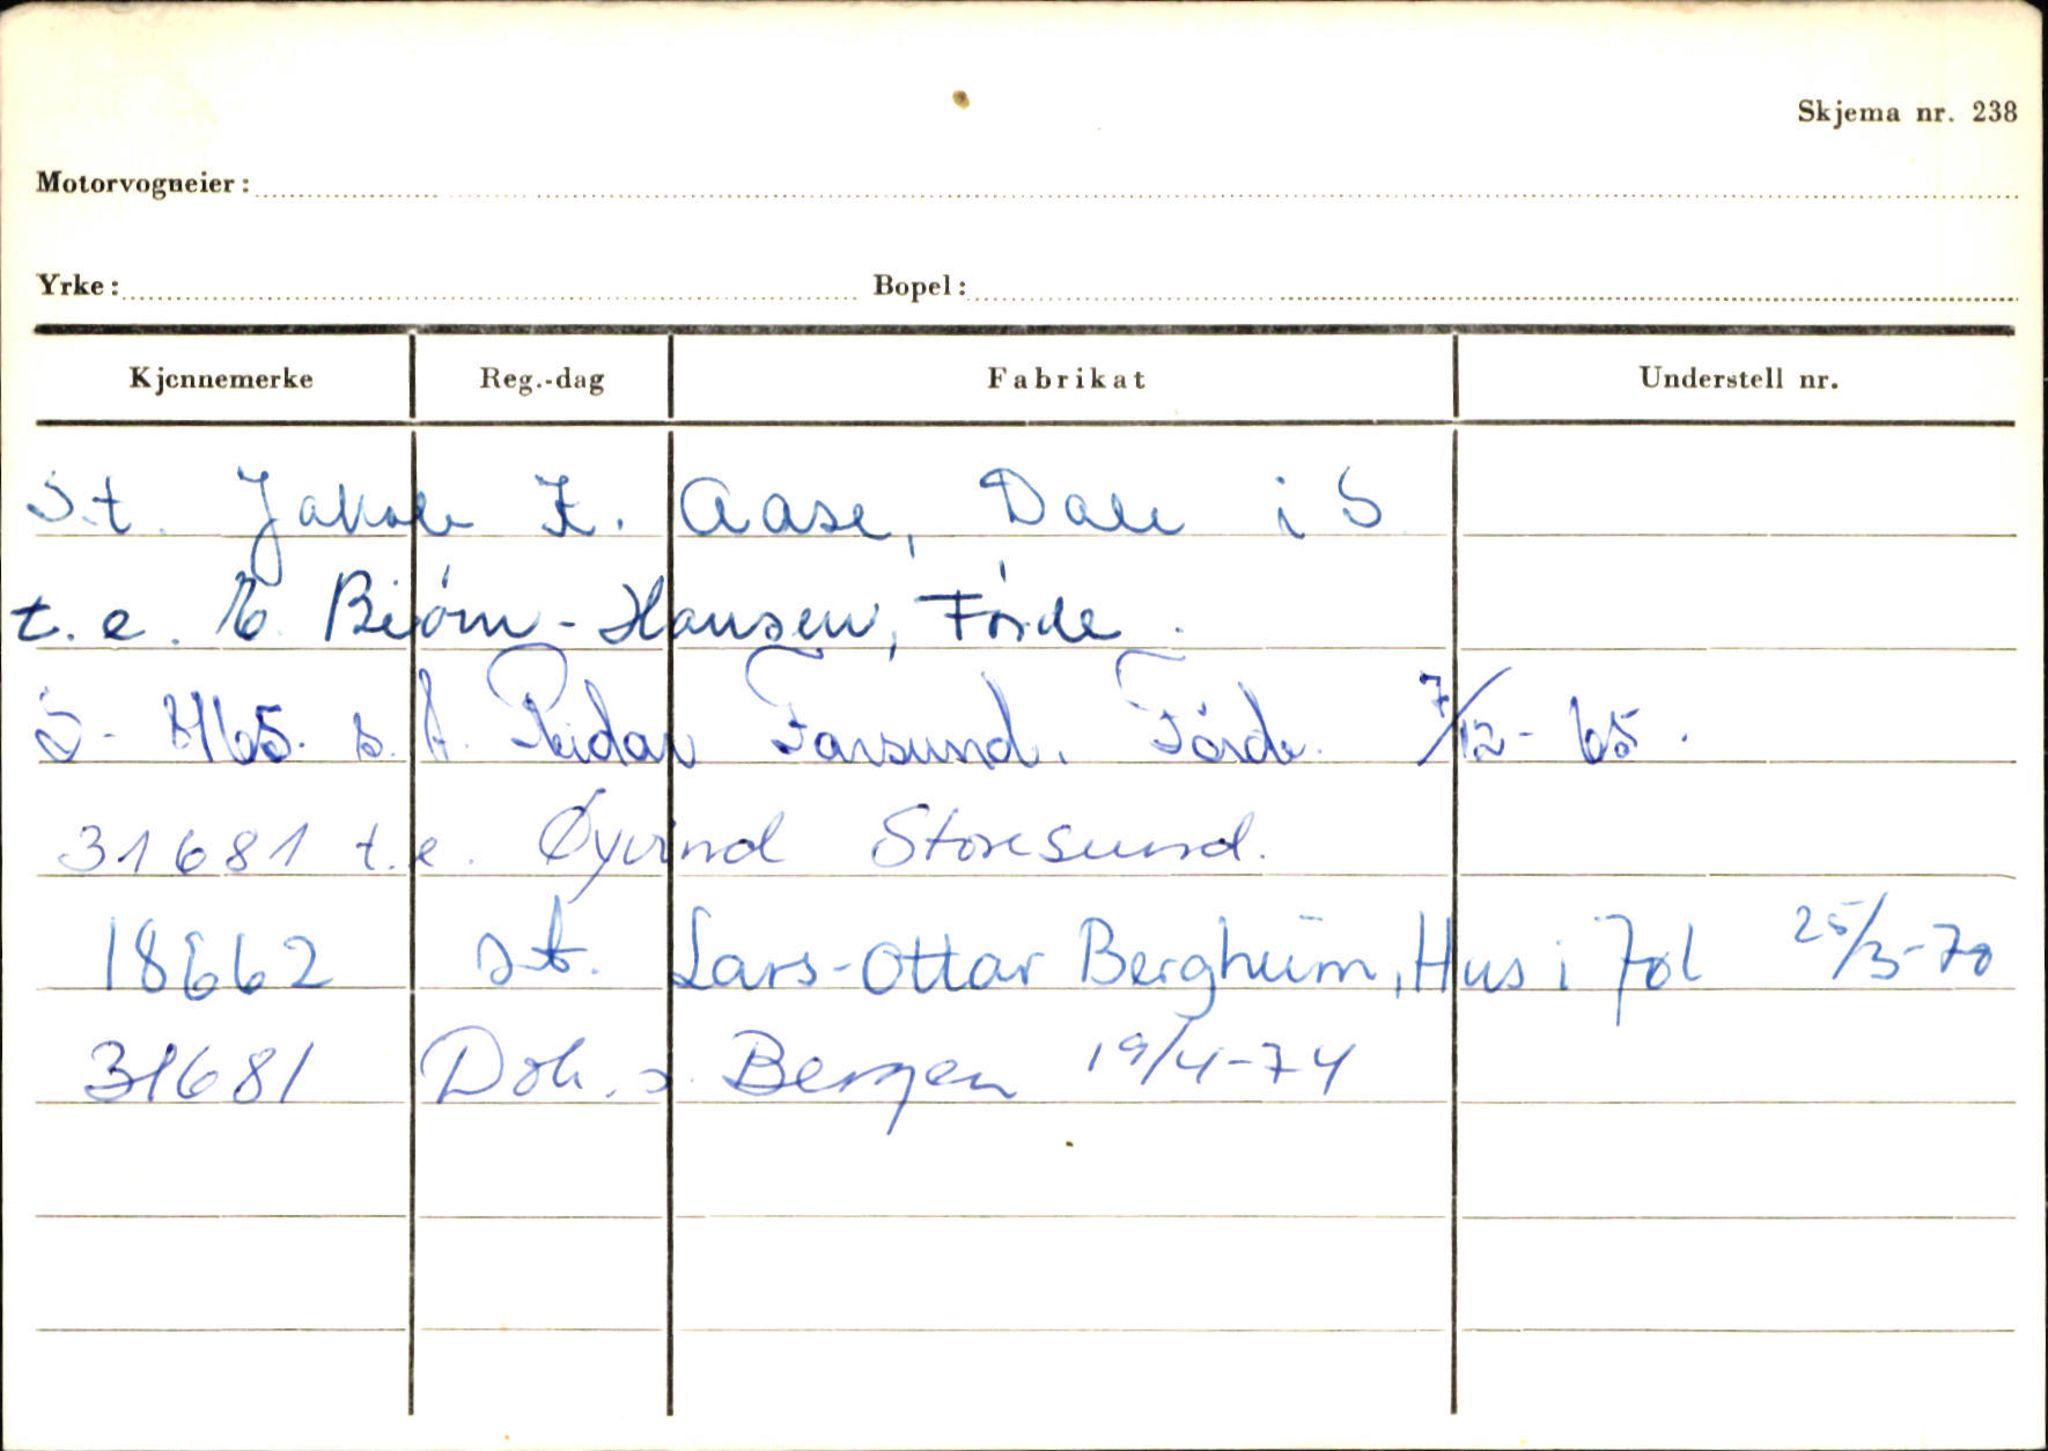 Skjema nr. 238
Motorvogneier:
Yrke: Bopel:
Kjennemerke Reg.-dag Fabrikat Understell nr.
S.t. Jakob K. Aase, Dale i S
t.e. Bjørn-Hansen, Førde.
S- 4465. s.t. Reidar Farsund. Førde. 7/12-65.
31681 t.e. Øyvind Storesund.
18662 s.t. Lars-Ottar Berghum, Hus i 25/3-70
31681 Dok. s. Bergen 19/4-74